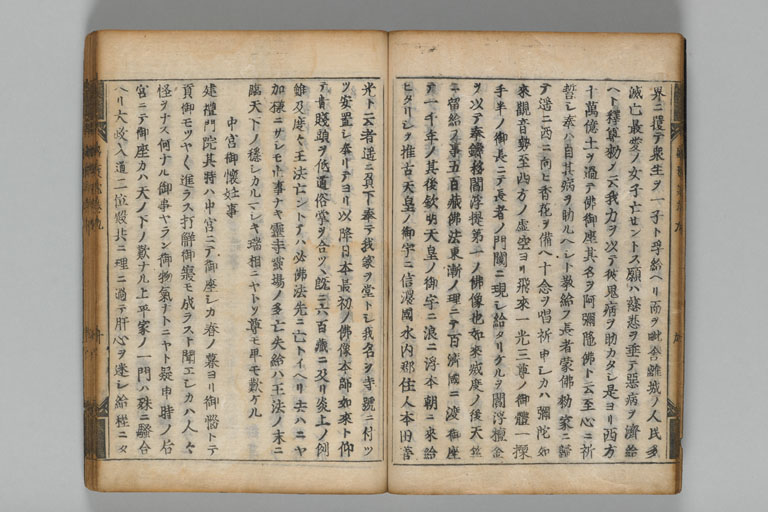 界ニ獲テ衆生ヲ一子ト孚給ヘリ而ヲ毗舎離城ノ人民多
滅亡最愛ノ女子亡セントス願ハ慈悲ヲ垂テ惡病ヲ濟給
ヘト釋尊勅ノ云我力ヲ以テ彼鬼病ヲ助カタシ是ヨリ西方
十萬億土ヲ過テ佛御座其名ヲ阿彌陀佛ト云至心ニ祈
誓シ奉ハ自其病ヲ助ルヘシト教給フ長者蒙佛勅家ニ歸
テ遥ニ西ニ向ヒ香花ヲ備ヘ十念ヲ唱祈申シカハ彌陀如
來觀音勢至西方ノ虚空ヨリ飛來一光三尊ノ御體一探
手半ノ御長ニテ長者ノ門閫ニ現シ給タリケルヲ閻浮檀金
ヲ以テ奉鑄移閻浮提第一ノ佛像也如來滅度ノ後天竺
ニ留給フ事五百歳佛法東漸ノ理ニテ百濟國ニ渡御座
テ一千年ノ其後欽明天皇ノ御宇ニ浪ニ浮本朝ニ來給
ヒタリシヲ推古天皇ノ御宇ニ信濃國水内郡住人本田善
光ト云者遥ニ負下奉テ我家ヲ堂トシ我名ヲ寺號ニ付ツ
ツ安置シ奉リテヨリ以降日本最初ノ佛像本師如來ト仰
テ貴賤頭ヲ低道俗掌ヲ合ツヽ既ニ六百歳ニ及リ炎上ノ例
雖及度々王法亡ントテハ必佛法先ニ亡トイヘリ去ハニヤ
加樣ニサシモ止事ナキ靈寺靈場ノ多亡失給ハ王法ノ末ニ
臨天下ノ穏シカルマシキ瑞相ニヤトソ尊モ卑モ歎ケル
中宮御懷妊事
建禮門院其時ハ中宮ニテ御座シカ春ノ暮ヨリ御惱トテ
貢御モツヤ〱進ラス打解御寢モ成ラスト聞エシカハ人々
怪ヲナス何ナル御事ヤラン御物氣ナトニヤト疑申時ノ后
宮ニテ御座カハ天ノ下ノ歎ナル上平家ノ一門ハ殊ニ騒合
ヘリ太政入道二位殿共ニ理ニ過テ肝心ヲ迷シ給程ニタ